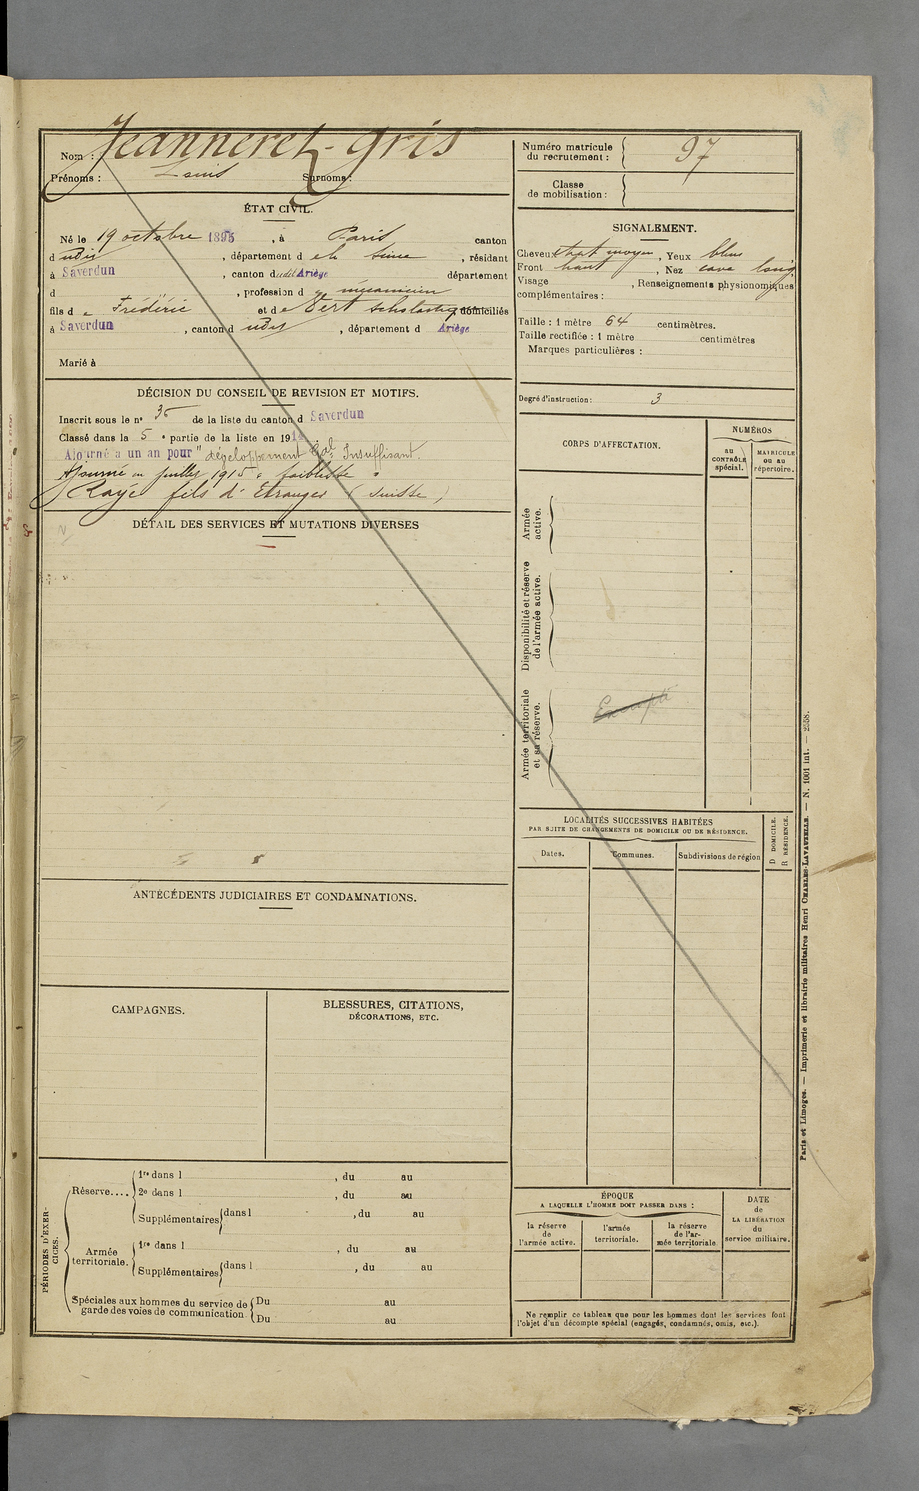 Nom : Jeanneret-Gris
Prénoms : Louis Surnoms :
Numéro matricule du recrutement : 97
Classe de mobilisation :
ÉTAT CIVIL.
Né le 19 octobre 1895, à Paris canton
d udit, département d e la Seine, résidant
à Saverdun, canton dudit Ariège département
d , profession d e mecanicien
fils d e Frédéric et de Vert Scholastique domiciliés
à Saverdun, canton d udit, département d Ariège
Marié à
SIGNALEMENT.
Cheveux chat moyen, Yeux bleus
Front haut, Nez cave long
Visage , Renseignements physionomiques
complémentaires :
Taille : 1 mètre 64 centimètres.
Taille rectifiée : 1 mètre centimètres
Marques particulières :
Degré d'instruction : 3
DÉCISION DU CONSEIL DE REVISION ET MOTIFS.
Inscrit sous le n° 36 de la liste du canton d Saverdun
Classé dans la 5e partie de la liste en 19
Ajourné à un an pour "développement Gal Insuffisant.
Ajourné en juillet 1915 "faiblesse"
Rayé fils d'Etranger (Suisse)
DÉTAIL DES SERVICES ET MUTATIONS DIVERSES
CORPS D'AFFECTATION.
NUMÉROS
au CONTRÔLE spécial.
MATRICULE ou au répertoire.
Armée active.
Disponibilité et réserve de l'armée active.
Armée territoriale et sa réserve.
Exempté
LOCALITÉS SUCCESSIVES HABITÉES
PAR SUITE DE CHANGEMENTS DE DOMICILE OU DE RÉSIDENCE.
D DOMICILE.
R RÉSIDENCE.
Dates. Communes. Subdivisions de région
ANTÉCÉDENTS JUDICIAIRES ET CONDAMNATIONS.
CAMPAGNES.
BLESSURES, CITATIONS,
DÉCORATIONS, ETC.
PÉRIODES D'EXERCICES.
Réserve....
1re dans l , du au
2e dans l , du au
Supplémentaires dans l , du au
Armée territoriale.
1re dans l , du au
Supplémentaires dans l , du au
Spéciales aux hommes du service de garde des voies de communication
Du au
Du au
ÉPOQUE
A LAQUELLE L'HOMME DOIT PASSER DANS :
la réserve de l'armée active.
l'armée territoriale.
la réserve de l'armée territoriale
DATE de LA LIBÉRATION du service militaire.
Ne remplir ce tableau que pour les hommes dont les services font
l'objet d'un décompte spécial (engagés, condamnés, omis, etc.).
Paris et Limoges. — Imprimerie et librairie militaires Henri CHARLES-LAVAUZELLE. — N. 1001 int. — 2558.